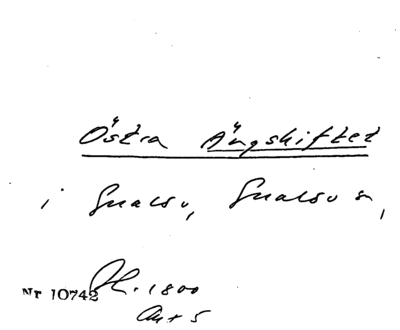 Östra Ängskiftet
i Gualöv, Gualöv s,
Nr 10742 Pl. 1800
Ant 5